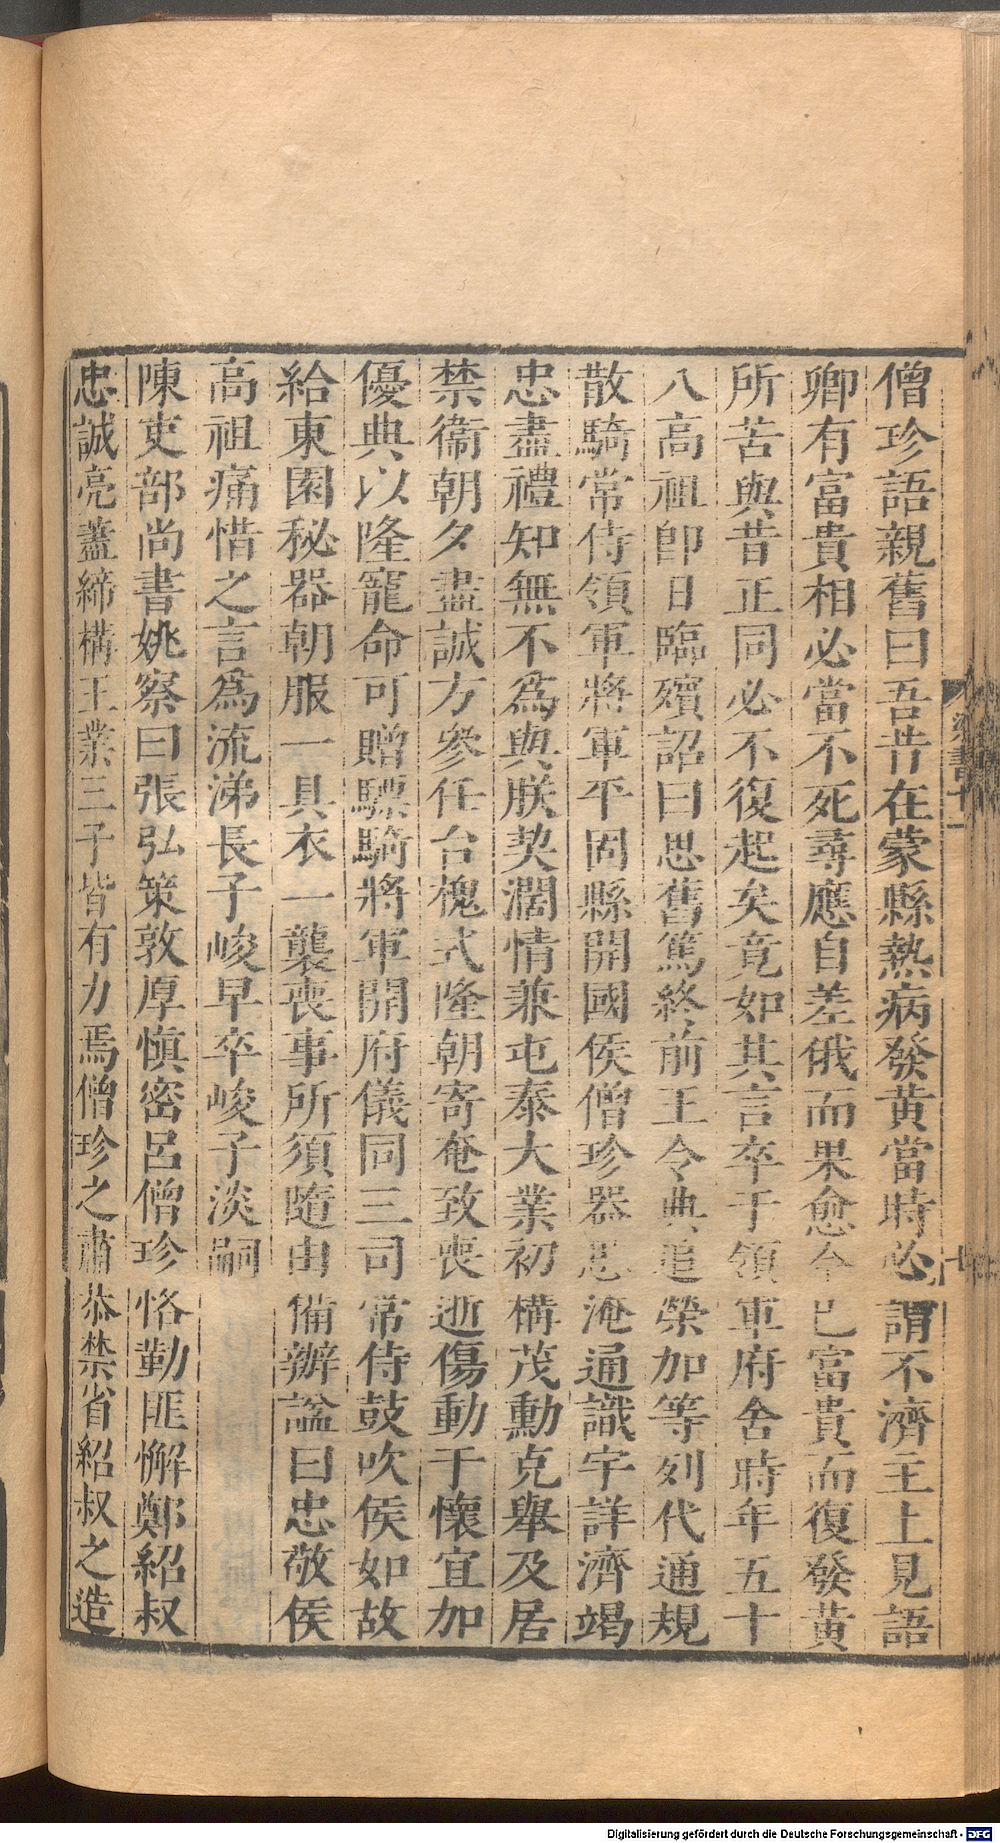 僧珍語親舊曰吾昔在蒙縣熱病發黃當時必謂不濟主上見語
卿有富貴相必當不死尋應自差俄而果愈今已富貴而復發黃
所苦與昔正同必不復起矣竟如其言卒于領軍府舍時年五十
八高祖卽日臨殯詔曰思舊篤終前王令典追榮加等列代通規
散騎常侍領軍將軍平固縣開國侯僧珍器思淹通識宇詳濟竭
忠盡禮知無不爲與朕契濶情兼屯泰大業初構茂勳克舉及居
禁衞朝夕盡誠方參任台槐式隆朝寄奄致喪逝傷動于懷宜加
優典以隆寵命可贈驃騎將軍開府儀同三司常侍鼓吹侯如故
給東園秘器朝服一具衣一襲喪事所須隨由備辦諡曰忠敬侯
高祖痛惜之言爲流涕長子峻早卒峻子淡嗣
陳吏部尚書姚察曰張弘策敦厚愼密呂僧珍恪勤匪懈鄭紹叔
忠誠亮藎締構王業三子皆有力焉僧珍之肅恭禁省紹叔之造
梁書十一
七
Digitalisierung gefördert durch die Deutsche Forschungsgemeinschaft - DFG